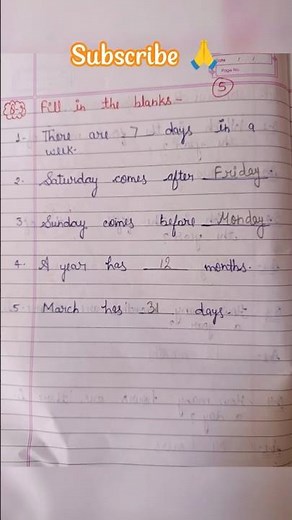 Subscribe 🙏
Page No.
5
Fill in the blanks -
1. There are 7 days in a
week.
2. Saturday comes after Friday.
3. Sunday comes before Monday.
4. A year has 12 months.
5. March has 31 days.